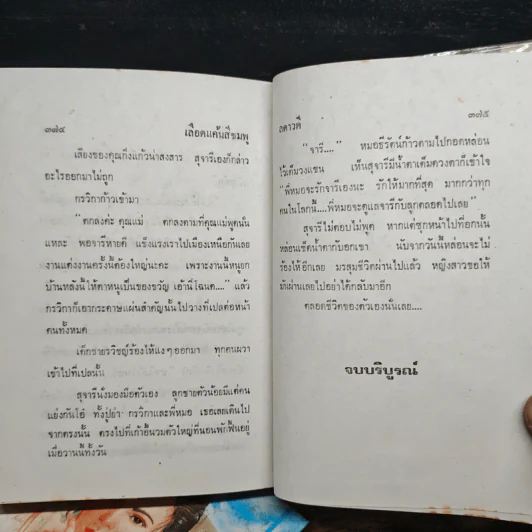 ๓๗๔ เลือดแค้นสีชมพู
เสียงของคุณกิ่งแก้วน่าสงสาร สุจารีเองก็กล่าว
อะไรออกมาไม่ถูก
กรวิกาก้าวเข้ามา
"ตกลงค่ะ คุณแม่ ตกลงตามที่คุณแม่พูดนั่น
แหละ พอจารีหายดี แข็งแรงเราไปเมืองเหนือกันเลย
งานแต่งงานครั้งนี้ต้องใหญ่นะคะ เพราะงานนี้หนูยก
บ้านหลังนี้ให้ตาหนูเป็นของขวัญ เอ้านี่โฉนด...." แล้ว
กรวิกาก็เอากระดาษแผ่นสำคัญนั้นไปวางที่เปลต่อหน้า
คนทั้งหมด
เด็กชายรวิชญ์ร้องไห้แงๆ ออกมา ทุกคนผวา
เข้าไปที่เปลนั้น
สุจารีนั่งมองมือตัวเอง ลูกชายตัวน้อยมีแต่คน
แย่งกันโอ๋ ทั้งปู่ย่า กรวิกาและพี่หมอ เธอเลยเดินไป
จากตรงนั้น ตรงไปที่เก้าอี้นวมตัวใหญ่ที่นอนพักฟื้นอยู่
เมื่อวานนี้ทั้งวัน
ลดาวดี ๓๗๕
"จารี...." หมอธีรัตน์ก้าวตามไปกอดหล่อน
ไว้เต็มวงแขน เห็นสุจารีมีน้ำตาเต็มดวงตาก็เข้าใจ
"พี่หมอจะรักจารีเองนะ รักให้มากที่สุด มากกว่าทุก
คนในโลกนี้....พี่หมอจะดูแลจารีกับลูกตลอดไปเลย"
สุจารีไม่ตอบไม่พูด หากแต่ซุกหน้าไปที่อกนั้น
หล่อนเช็ดน้ำตากับอกเขา นับจากวันนี้หล่อนจะไม่
ร้องไห้อีกเลย มรสุมชีวิตผ่านไปแล้ว หญิงสาวขอให้
มันผ่านเลยไปอย่าได้กลับมาอีก
ตลอดชีวิตของตัวเองนั่นเลย....
จบบริบูรณ์